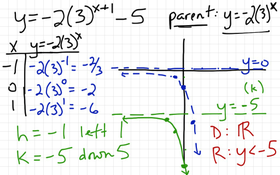 y=-2(3)^{x+1}-5
parent: y=-2(3)^x
x y=-2(3)^x
-1 -2(3)^{-1}=-2/3
0 -2(3)^0=-2
1 -2(3)^1=-6
h=-1 left 1
k=-5 down 5
y=0
(k)
y=-5
D: ℝ
R: y<-5